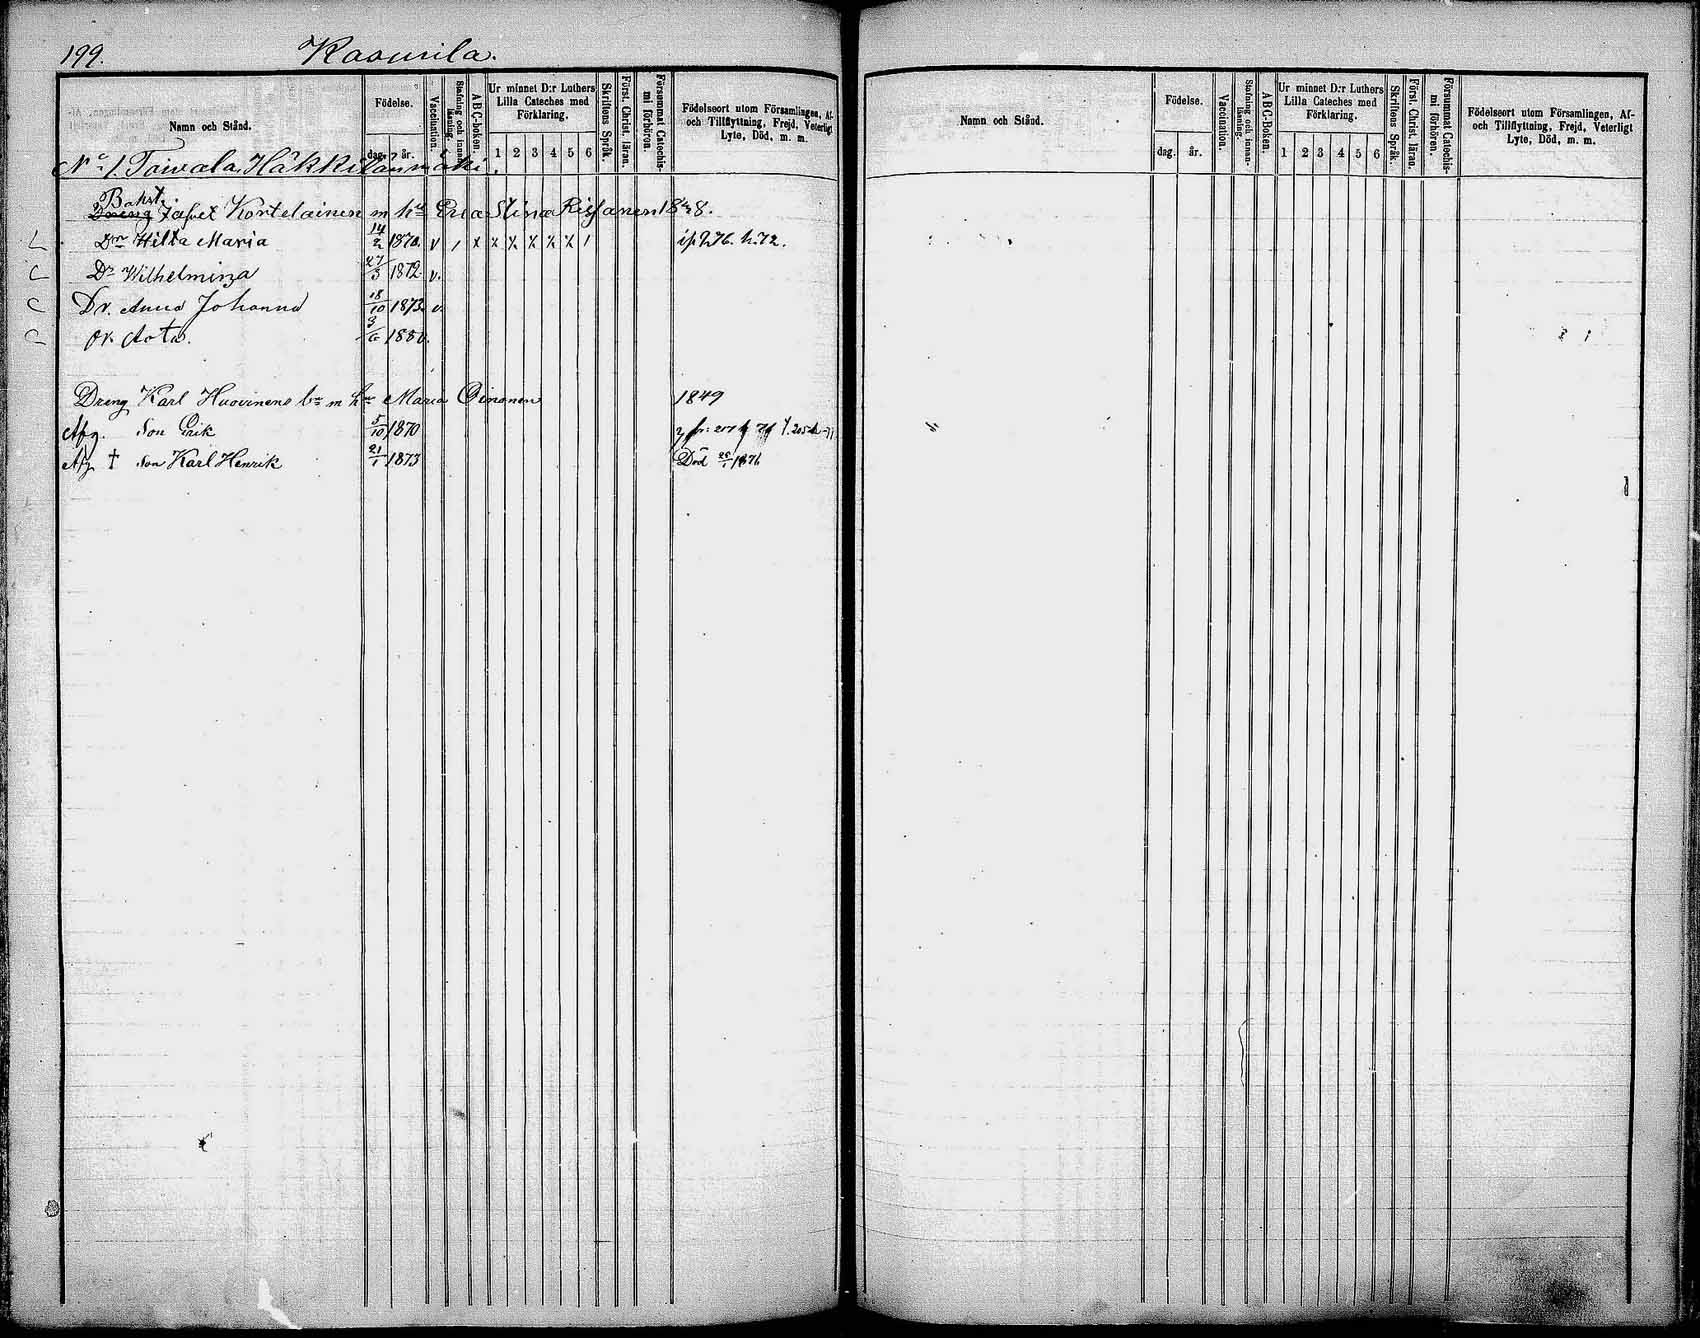 199. Kasurila.
Namn och Stånd.
Födelse.
dag. år.
Vaccination.
Stafning och innanläsning.
A B C-boken.
Ur minnet D:r Luthers Lilla Cateches med Förklaring.
1 2 3 4 5 6
Skriftens Språk.
Först. Christ. läran.
Försummat Catechismi förhören.
Födelseort utom Församlingen, Af- och Tillflyttning, Frejd, Veterligt Lyte, Död, m. m.
No 1 Taivala, Häkkilänmäki.
Bahst.
Dreng Kortelainen m hu Stina Rissanen
Dr Hilda Maria 14/2 1870. v / x x x x x x /
Dr Wilhelmina 27/3 1872. v.
Dr. Anna Johanna 18/10 1873. v.
Dr. Aota. 3/6 1880.
Dreng Karl Huovinens br m hu Maria Oinonen 1849
Afg. Son Erik 5/10 1870
Afg † Son Karl Henrik 21/1 1873 Död 25/1 1876
Namn och Stånd.
Födelse.
dag. år.
Vaccination.
Stafning och innanläsning.
A B C-Boken.
Ur minnet D:r Luthers Lilla Cateches med Förklaring.
1 2 3 4 5 6
Skriftens Språk.
Först. Christ. läran.
Försummat Catechismi förhören.
Födelseort utom Församlingen, Af- och Tillflyttning, Frejd, Veterligt Lyte, Död, m. m.